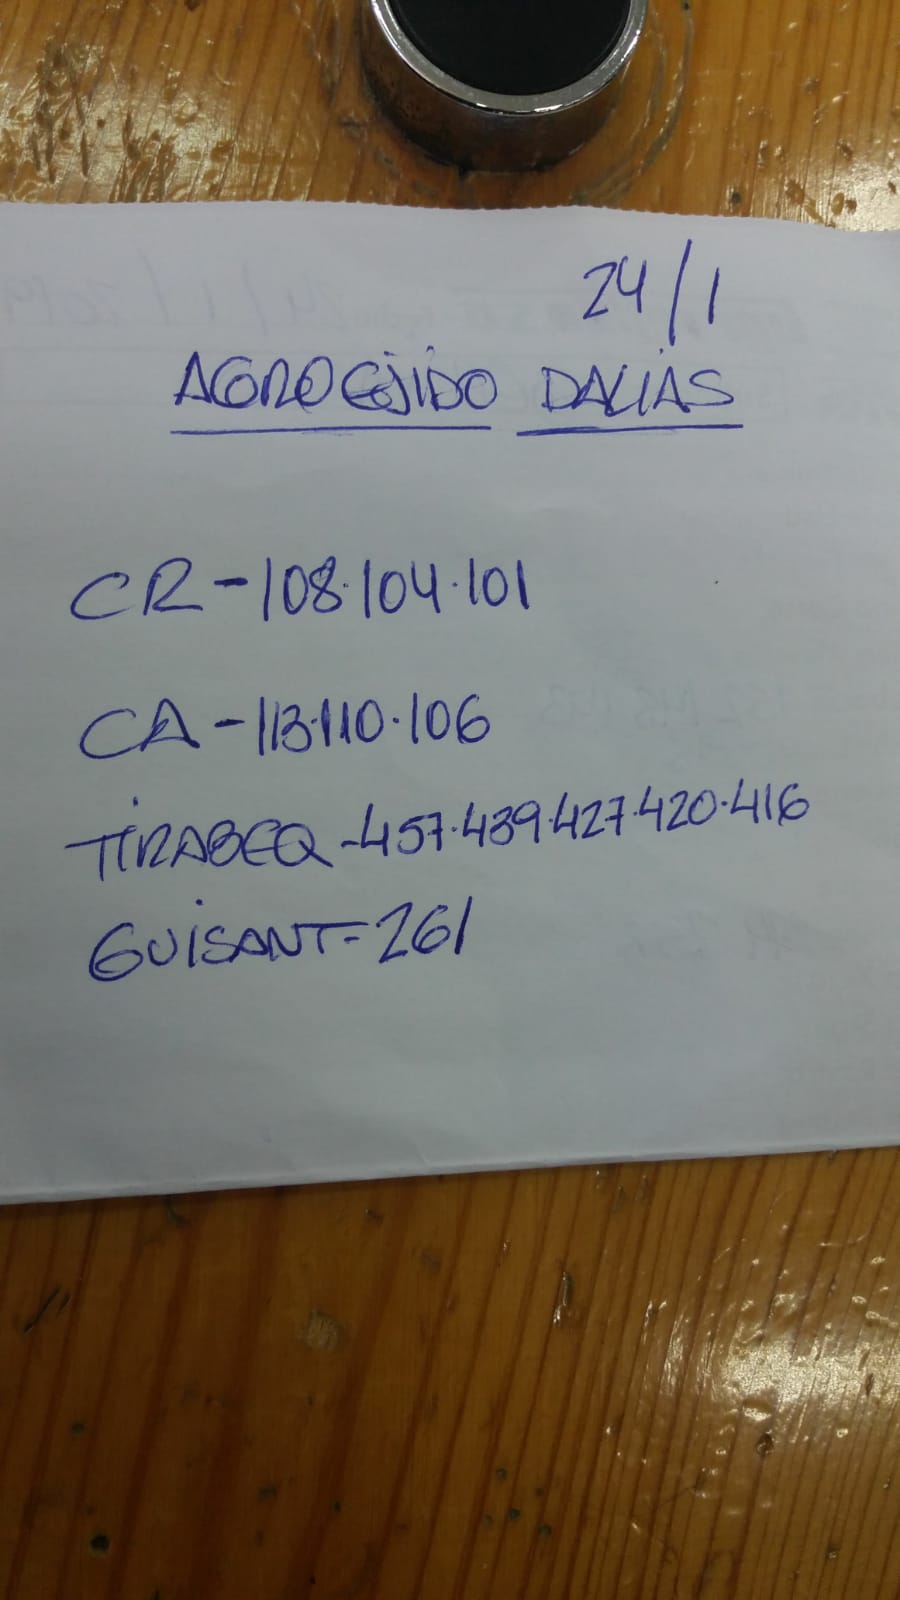 24/1
AGROEJIDO DALIAS
CR-108.104.101
CA-113.110.106
TIRABEQ-457.439.427.420.416
GUISANT-261